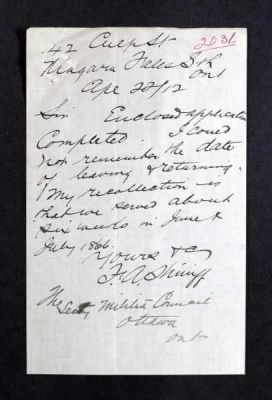 42 Culp St 2031
Niagara Falls S
Ont
Ape 22/12
Sir Enclosed application
Completed. I coued
not remember the date
of leaving & returning.
My recollection is
that we served about
six weeks in June &
July 1866.
Yours &c
F A Shirriff
The Secty Militia Council
Ottawa
Ont